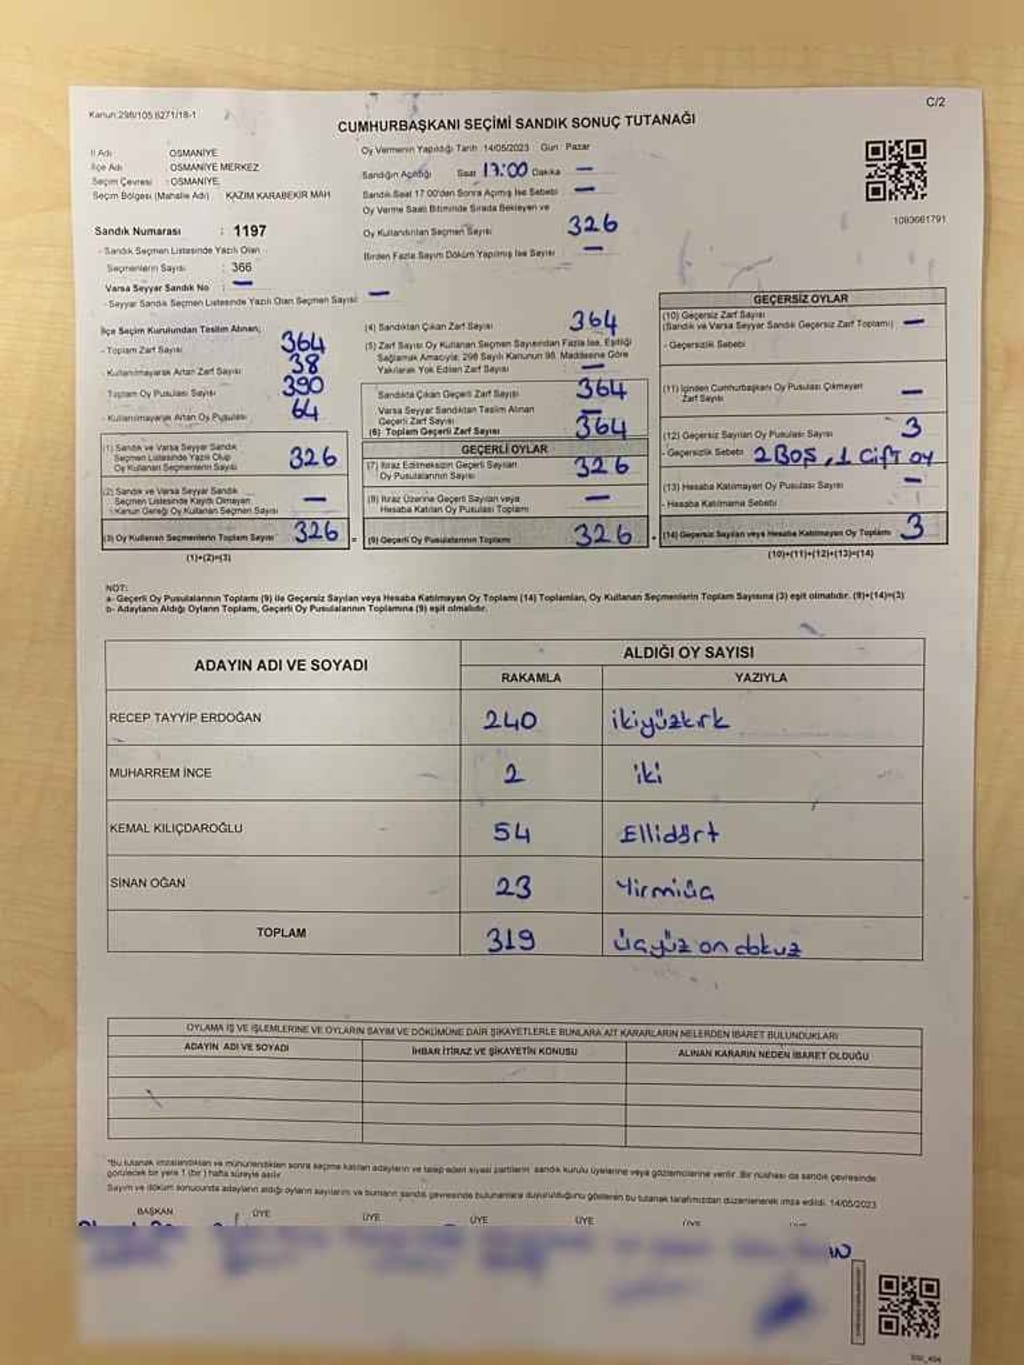 C/2
Kanun:298/105 6271/18-1
CUMHURBAŞKANI SEÇİMİ SANDIK SONUÇ TUTANAĞI
İl Adı OSMANİYE
İlçe Adı OSMANİYE MERKEZ
Seçim Çevresi : OSMANİYE
Seçim Bölgesi (Mahalle Adı) KAZIM KARABEKİR MAH
Sandık Numarası : 1197
- Sandık Seçmen Listesinde Yazılı Olan
Seçmenlerin Sayısı : 366
Varsa Seyyar Sandık No : —
- Seyyar Sandık Seçmen Listesinde Yazılı Olan Seçmen Sayısı: —
Oy Vermenin Yapıldığı Tarih :14/05/2023 Gün : Pazar
Sandığın Açıldığı Saat 17:00 Dakika —
Sandık Saat 17:00'den Sonra Açılmış İse Sebebi —
Oy Verme Saati Bitiminde Sırada Bekleyen ve
Oy Kullandırılan Seçmen Sayısı 326
Birden Fazla Sayım Döküm Yapılmış İse Sayısı —
1093661791
İlçe Seçim Kurulundan Teslim Alınan;
- Toplam Zarf Sayısı 364
- Kullanılmayarak Artan Zarf Sayısı 38
Toplam Oy Pusulası Sayısı 390
- Kullanılmayarak Artan Oy Pusulası 64
(1) Sandık ve Varsa Seyyar Sandık
Seçmen Listesinde Yazılı Olup
Oy Kullanan Seçmenlerin Sayısı 326
(2) Sandık ve Varsa Seyyar Sandık
Seçmen Listesinde Kayıtlı Olmayan
Kanun Gereği Oy Kullanan Seçmen Sayısı —
(3) Oy Kullanan Seçmenlerin Toplam Sayısı 326 =
(1)+(2)=(3)
(4) Sandıktan Çıkan Zarf Sayısı 364
(5) Zarf Sayısı Oy Kullanan Seçmen Sayısından Fazla İse, Eşitliği
Sağlamak Amacıyla; 298 Sayılı Kanunun 98. Maddesine Göre
Yakılarak Yok Edilen Zarf Sayısı —
Sandıkta Çıkan Geçerli Zarf Sayısı 364
Varsa Seyyar Sandıktan Teslim Alınan
Geçerli Zarf Sayısı —
(6) Toplam Geçerli Zarf Sayısı 364
GEÇERLİ OYLAR
(7) İtiraz Edilmeksizin Geçerli Sayılan
Oy Pusulası Sayısı 326
(8) İtiraz Üzerine Geçerli Sayılan veya
Hesaba Katılan Oy Pusulası Toplamı —
(9) Geçerli Oy Pusulalarının Toplamı 326 +
GEÇERSİZ OYLAR
(10) Geçersiz Zarf Sayısı
(Sandık ve Varsa Seyyar Sandık Geçersiz Zarf Toplamı) —
- Geçersizlik Sebebi
(11) İçinden Cumhurbaşkanı Oy Pusulası Çıkmayan
Zarf Sayısı —
(12) Geçersiz Sayılan Oy Pusulası Sayısı 3
- Geçersizlik Sebebi 2 BOŞ, 1 Çift oy
(13) Hesaba Katılmayan Oy Pusulası Sayısı —
- Hesaba Katılmama Sebebi
(14) Geçersiz Sayılan veya Hesaba Katılmayan Oy Toplamı 3
(10)+(11)+(12)+(13)=(14)
NOT:
a- Geçerli Oy Pusulalarının Toplamı (9) ile Geçersiz Sayılan veya Hesaba Katılmayan Oy Toplamı (14) Toplamları, Oy Kullanan Seçmenlerin Toplam Sayısına (3) eşit olmalıdır. (9)+(14)=(3)
b- Adayların Aldığı Oyların Toplamı, Geçerli Oy Pusulalarının Toplamına (9) eşit olmalıdır.
ADAYIN ADI VE SOYADI ALDIĞI OY SAYISI
RAKAMLA YAZIYLA
RECEP TAYYİP ERDOĞAN 240 ikiyüzkırk
MUHARREM İNCE 2 iki
KEMAL KILIÇDAROĞLU 54 Ellidört
SİNAN OĞAN 23 Yirmiüç
TOPLAM 319 üçyüz on dokuz
OYLAMA İŞ VE İŞLEMLERİNE VE OYLARIN SAYIM VE DÖKÜMÜNE DAİR ŞİKAYETLERLE BUNLARA AİT KARARLARIN NELERDEN İBARET BULUNDUKLARI
ADAYIN ADI VE SOYADI İHBAR İTİRAZ VE ŞİKAYETİN KONUSU ALINAN KARARIN NEDEN İBARET OLDUĞU
*Bu tutanak imzalandıktan ve mühürlendikten sonra seçime katılan adayların ve talep eden siyasi partilerin sandık kurulu üyelerine veya gözlemcilerine verilir. Bir nüshası da sandık çevresinde
görülecek bir yere 1 (bir) hafta süreyle asılır.
Sayım ve döküm sonucunda adayların aldığı oyların sayılarını ve bunların sandık çevresinde bulunanlara duyurulduğunu gösteren bu tutanak tarafımızdan düzenlenerek imza edildi. 14/05/2023
BAŞKAN ÜYE ÜYE ÜYE ÜYE ÜYE